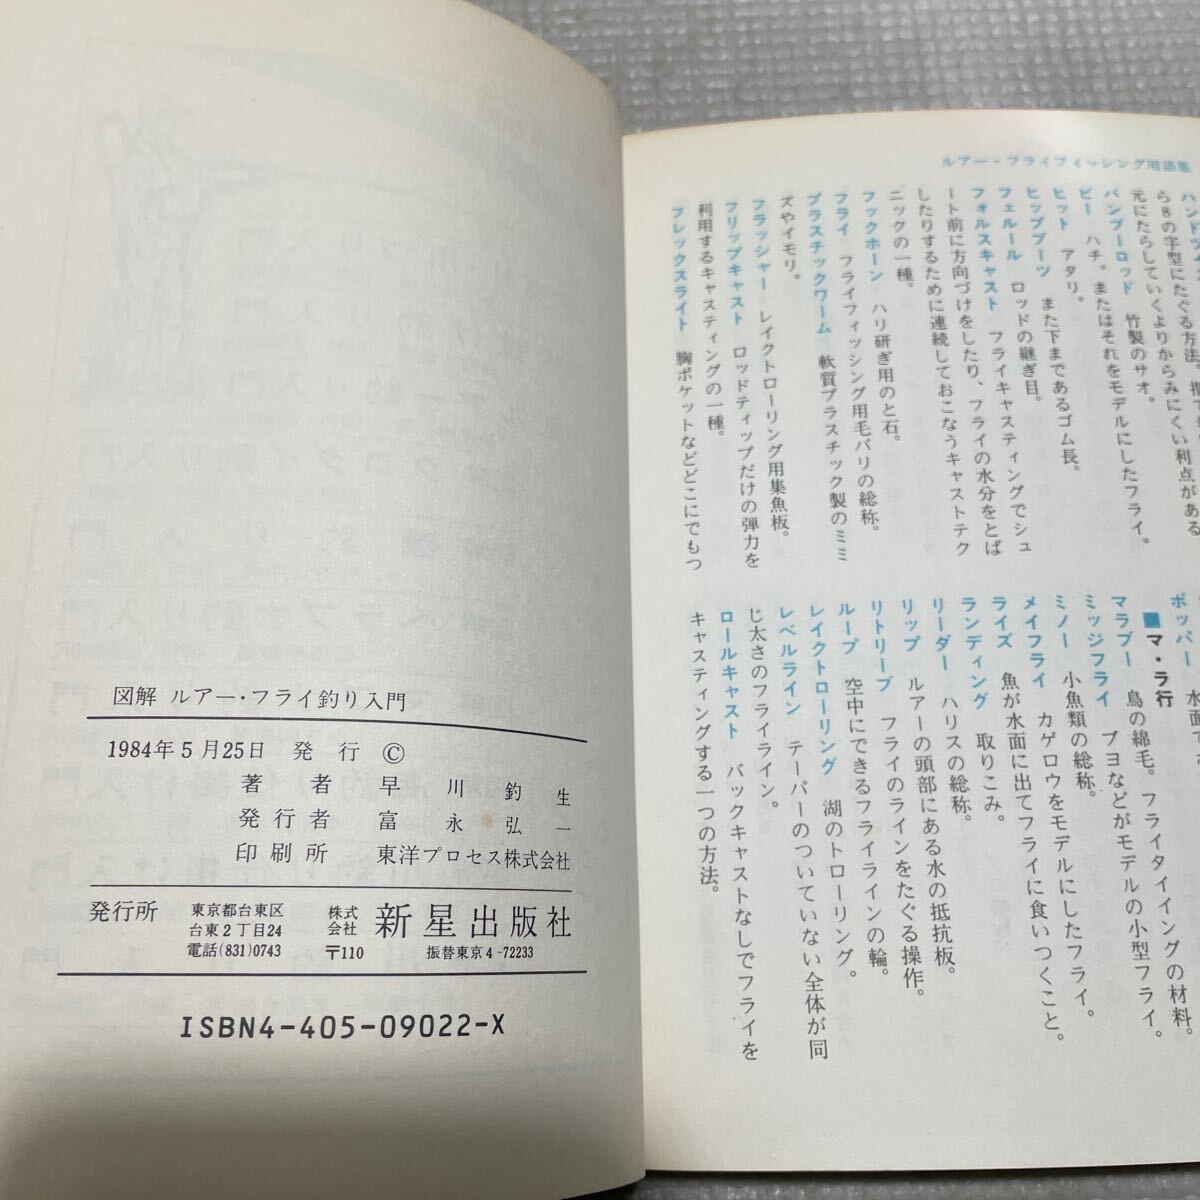 図解 ルアー・フライ釣り入門
1984年5月25日 発行 ©
著者 早川釣生
発行者 富永弘一
印刷所 東洋プロセス株式会社
発行所 東京都台東区台東2丁目24 電話(831)0743 株式会社 新星出版社 〒110 振替東京4-72233
ISBN4-405-09022-X
ルアー・フライフィッシング用語集
ら8の字型にたぐる方法。
元にたらしていくよりからみにくい利点がある
バンブーロッド 竹製のサオ。
ビー ハチ。またはそれをモデルにしたフライ。
ヒット アタリ。
ヒップブーツ また下まであるゴム長。
フェルール ロッドの継ぎ目。
フォルスキャスト フライキャスティングでシュ
ート前に方向づけをしたり、フライの水分をとば
したりするために連続しておこなうキャストテク
ニックの一種。
フックホーン ハリ研ぎ用のと石。
フライ フライフィッシング用毛バリの総称。
プラスチックワーム 軟質プラスチック製のミミ
ズやイモリ。
フラッシャー レイクトローリング用集魚板。
フリップキャスト ロッドティップだけの弾力を
利用するキャスティングの一種。
フレックスライト 胸ポケットなどどこにでもつ
ポッパー 水面で
■マ・ラ行
マラブー 鳥の綿毛。フライタイイングの材料。
ミッジフライ ブヨなどがモデルの小型フライ。
ミノー 小魚類の総称。
メイフライ カゲロウをモデルにしたフライ。
ライズ 魚が水面に出てフライに食いつくこと。
ランディング 取りこみ。
リーダー ハリスの総称。
リップ ルアーの頭部にある水の抵抗板。
リトリーブ フライのラインをたぐる操作。
ループ 空中にできるフライラインの輪。
レイクトローリング 湖のトローリング。
レベルライン テーパーのついていない全体が同
じ太さのフライライン。
ロールキャスト バックキャストなしでフライを
キャスティングする一つの方法。